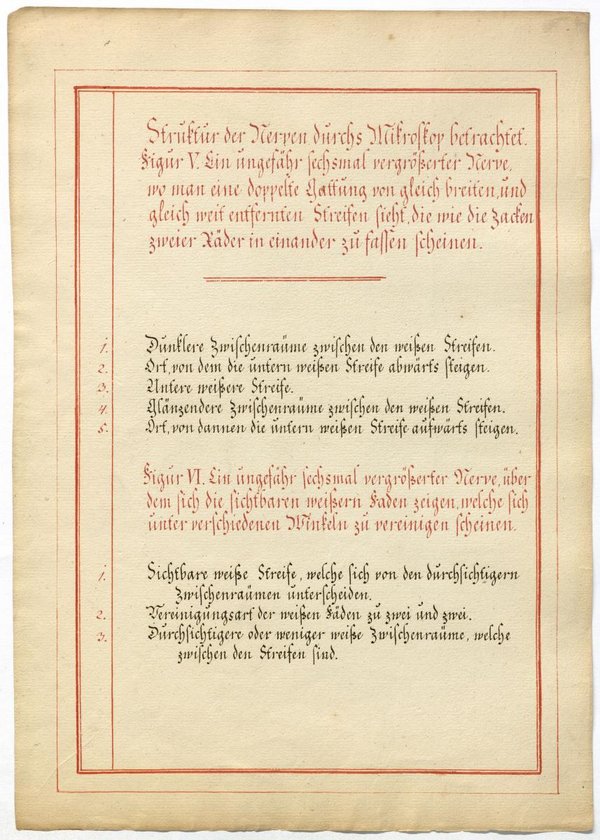 Struktur der Nerven durchs Mikroskop betrachtet.
Figur V. Ein ungefähr sechsmal vergrößerter Nerve,
wo man eine doppelte Gattung von gleich breiten, und
gleich weit entfernten Streifen sieht, die wie die Zacken
zweier Räder in einander zu fassen scheinen.
1. Dunklere Zwischenräume zwischen den weißen Streifen.
2. Ort, von dem die untern weißen Streife abwärts steigen.
3. Untere weißere Streife.
4. Glänzendere Zwischenräume zwischen den weißen Streifen.
5. Ort, von dannen die untern weißen Streife aufwärts steigen.
Figur VI. Ein ungefähr sechsmal vergrößerter Nerve, über
dem sich die sichtbaren weißern Faden zeigen, welche sich
unter verschiedenen Winkeln zu vereinigen scheinen.
1. Sichtbare weiße Streife, welche sich von den durchsichtigern
Zwischenräumen unterscheiden.
2. Vereinigungsart der weißen Fäden zu zwei und zwei.
3. Durchsichtigere oder weniger weiße Zwischenräume, welche
zwischen den Streifen sind.